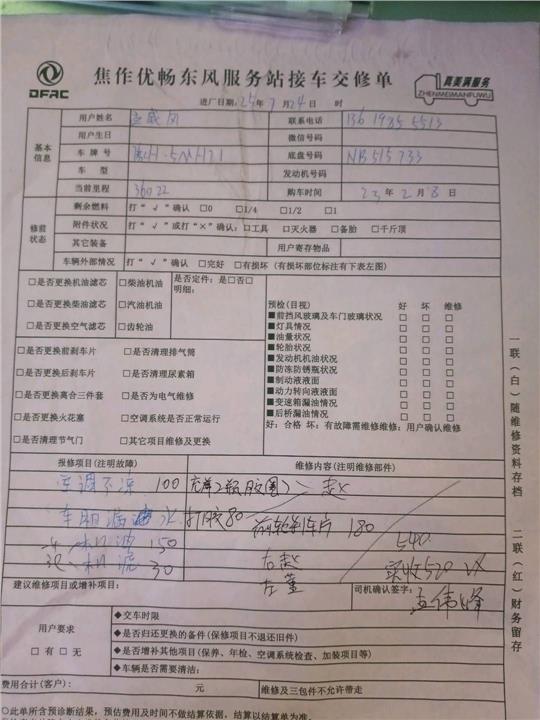 DFAC
焦作优畅东风服务站接车交修单
真美满服务
ZHENMEIMANFUWU
进厂日期: 25年 7月 24日 时
基本信息
用户姓名 联系电话 136 1985 5513
用户生日 微信号码
车牌号 底盘号码 NB515733
车型 发动机号码
当前里程 36022 购车时间 23年 2月 8日
修前状态
剩余燃料 打“√”确认 □0 □1/4 □1/2 □1
附件状况 打“√”或打“×”确认:□工具 □灭火器 □备胎 □千斤顶
其它装备 用户寄存物品
车辆外部情况 打“√”确认 □完好 □有损坏(有损坏部位标注有下表左图)
□是否更换机油滤芯 □柴油机油 是否定件:是□否□
明细:
□是否更换柴油滤芯 □汽油机油
□是否更换空气滤芯 □齿轮油
□是否更换前刹车片 □是否清理排气筒
□是否更换后刹车片 □是否清理尿素箱
□是否更换离合三件套 □是否为电气维修
□是否更换火花塞 □空调系统是否正常运行
□是否清理节气门 □其它项目维修及更换
预检(目视) 好 坏 维修
■前挡风玻璃及车门玻璃状况 □ □ □
■灯具情况 □ □ □
■油量状况 □ □ □
■轮胎状况 □ □ □
■发动机机油状况 □ □ □
■防冻防锈瓶状况 □ □ □
■制动液液面 □ □ □
■动力转向液液面 □ □ □
■变速箱漏油情况 □ □ □
■后桥漏油情况 □ □ □
好:合格 坏:有故障需维修维修:用户确认维修
报修项目(注明故障) 维修内容(注明维修部件)
空调不凉 100
车厢漏 水 打胶80 前轮刹车片 180
机油 150 540
机滤 30 右赵 实收520
左董
建议维修项目或增补项目: 司机确认签字: 孟伟峰
用户要求
□有 □无
◆交车时限
◆是否归还更换的备件(保修项目不退还旧件)
◆是否增补其他项目(保养、年检、空调系统检查、加装项目等)
◆车辆是否需要清洁:
费用合计(客户): 元 维修及三包件不允许带走
○此单所含预诊断结果,预估费用及时间不做结算依据,结算以结算单为准.
一联(白)随维修资料存档
二联(红)财务留存